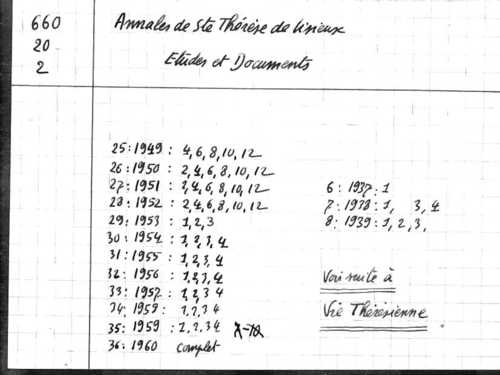 660
20
2
Annales de Ste Thérèse de Lisieux
Etudes et Documents
25: 1949 : 4, 6, 8, 10, 12
26: 1950 : 2, 4, 6, 8, 10, 12
27: 1951 : 2, 4, 6, 8, 10, 12
28: 1952 : 2, 4, 6, 8, 10, 12
29: 1953 : 1, 2, 3
30: 1954 : 1, 2, 3, 4
31: 1955 : 1, 2, 3, 4
32: 1956 : 1, 2, 3, 4
33: 1957 : 1, 2, 3 4
34: 1958 : 1, 2, 3 4
35: 1959 : 1, 2, 3 4
36: 1960 complet
6 : 1937 : 1
7 : 1938 : 1, 3, 4
8 : 1939 : 1, 2, 3,
Voir suite à
Vie Thérésienne